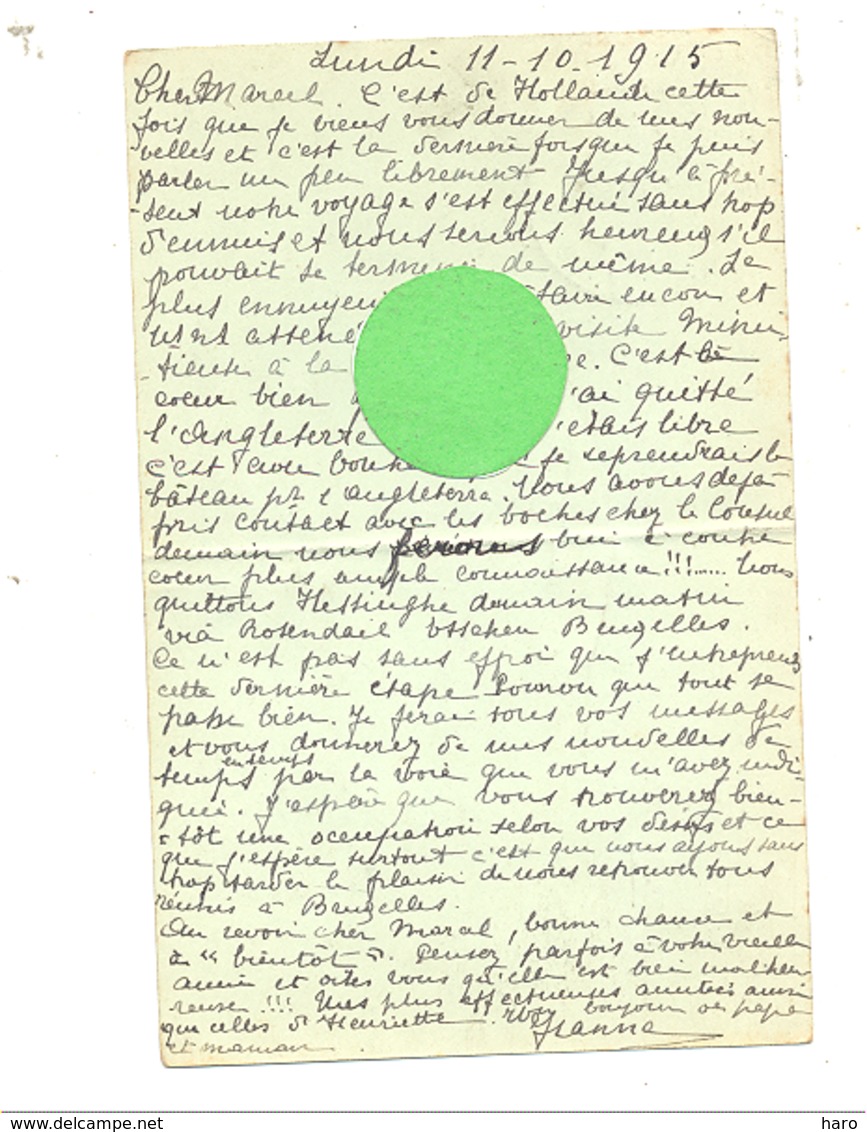 Lundi 11-10-1915
Cher Marcel. C'est de Hollande cette
fois que je viens vous donner de mes nou-
velles et c'est la dernière fois que je puis
parler un peu librement. Jusqu'à pré-
-sent notre voyage s'est effectué sans trop
d'ennuis et nous serions heureux s'il
pouvait se terminer de même. Le
plus ennuyeu faire encore et
visite minu-
-tieuse à la e. C'est le
coeur bien 'ai quitté
l'Angleterre 'étais libre
c'est avec bonhe je reprendrais le
bâteau pr l'angleterre. Nous avons déjà
pris contact avec les boches chez le Consul
demain nous ferons bien à contre
coeur plus ample connaissance!!!..... Nous
quittons Flessinghe demain matin
via Rosendaël Esschen Bruxelles.
Ce n'est pas sans effroi que j'entreprends
cette dernière étape. Pourvu que tout se
passe bien. Je ferai tous vos messages
et vous donnerez de mes nouvelles de
temps en temps par la voie que vous m'avez indi-
quée. J'espère que vous trouverez bien-
-tôt une occupation selon vos désirs et ce
que j'espère surtout c'est que nous ayons sans
trop tarder le plaisir de nous retrouver tous
réunis à Bruxelles.
Au revoir cher Marcel, bonne chance et
à "bientôt". Pensez parfois à votre vieille
amie et dites vous qu'elle est bien malheu-
reuse!!! Mes plus affectueuses amitiés ainsi
que celles d'Henriette. bonjour de papa
et maman. Jeanne
delcampe.net
haro